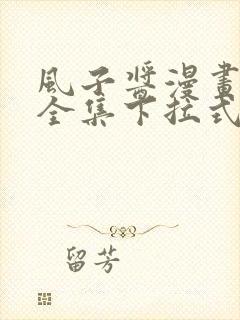 風子醬漫畫
全集下拉式
留芳